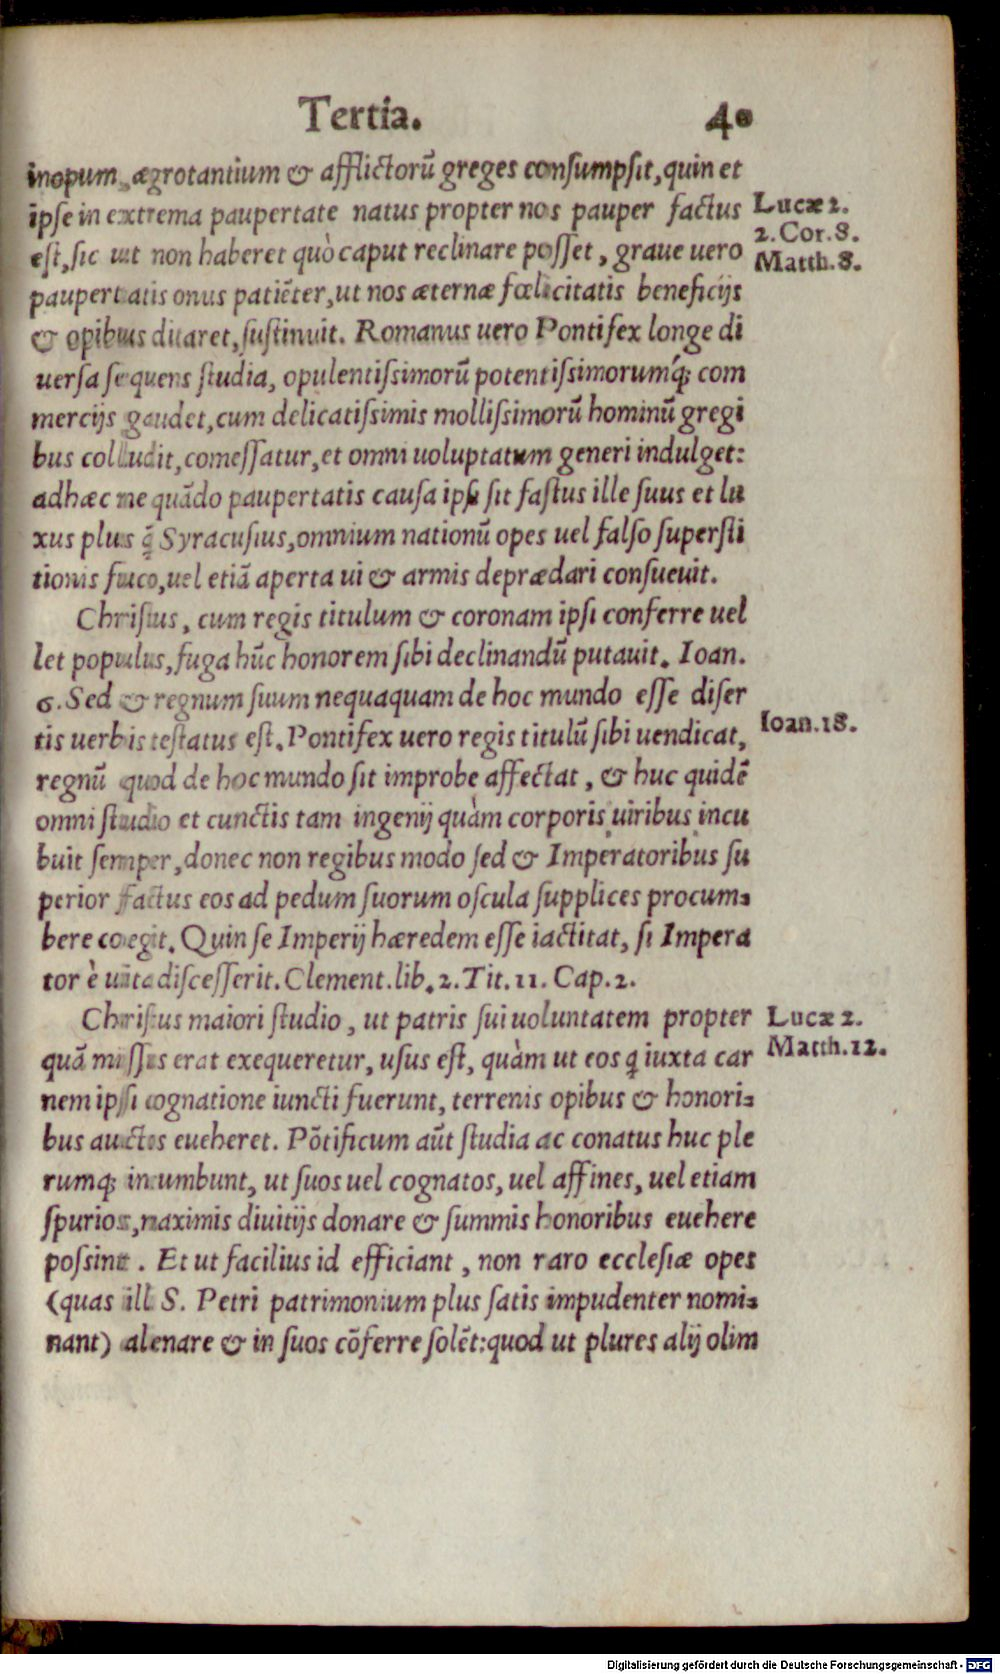 Tertia. 40
inopum, ægrotantium & afflictorũ greges consumpsit, quin et
ipse in extrema paupertate natus propter nos pauper factus
Lucæ 2.
2. Cor. 8.
est, sic ut non haberet quò caput reclinare posset, graue uero
Matth. 8.
paupertatis onus patiẽter, ut nos æternæ fœlicitatis beneficijs
& opibus ditaret, sustinuit. Romanus uero Pontifex longe di
uersa sequens studia, opulentissimorũ potentissimorumq́; com
mercijs gaudet, cum delicatissimis mollissimorũ hominũ gregi
bus colludit, comessatur, et omni uoluptatum generi indulget:
adhæc ne quãdo paupertatis causa ipsi sit fastus ille suus et lu
xus plus q̃ Syracusius, omnium nationũ opes uel falso supersti
tionis fuco, uel etiã aperta ui & armis deprædari consueuit.
Christus, cum regis titulum & coronam ipsi conferre uel
let populus, fuga hũc honorem sibi declinandũ putauit. Ioan.
6. Sed & regnum suum nequaquam de hoc mundo esse diser
tis uerbis testatus est. Pontifex uero regis titulũ sibi uendicat,
Ioan. 18.
regnũ quod de hoc mundo sit improbe affectat, & huc quidẽ
omni studio et cunctis tam ingenij quàm corporis uiribus incu
buit semper, donec non regibus modo sed & Imperatoribus su
perior factus eos ad pedum suorum oscula supplices procum-
bere coegit. Quin se Imperij hæredem esse iactitat, si Impera
tor è uita discesserit. Clement. lib. 2. Tit. 11. Cap. 2.
Christus maiori studio, ut patris sui uoluntatem propter
Lucæ 2.
quã missus erat exequeretur, usus est, quàm ut eos q iuxta car
Matth. 12.
nem ipsi cognatione iuncti fuerunt, terrenis opibus & honori-
bus auctos eueheret. Põtificum aũt studia ac conatus huc ple
rumq; incumbunt, ut suos uel cognatos, uel affines, uel etiam
spurios, maximis diuitijs donare & summis honoribus euehere
possint. Et ut facilius id efficiant, non raro ecclesiæ opes
(quas illi S. Petri patrimonium plus satis impudenter nomi-
nant) alienare & in suos cõferre solẽt: quod ut plures alij olim
Digitalisierung gefördert durch die Deutsche Forschungsgemeinschaft - DFG